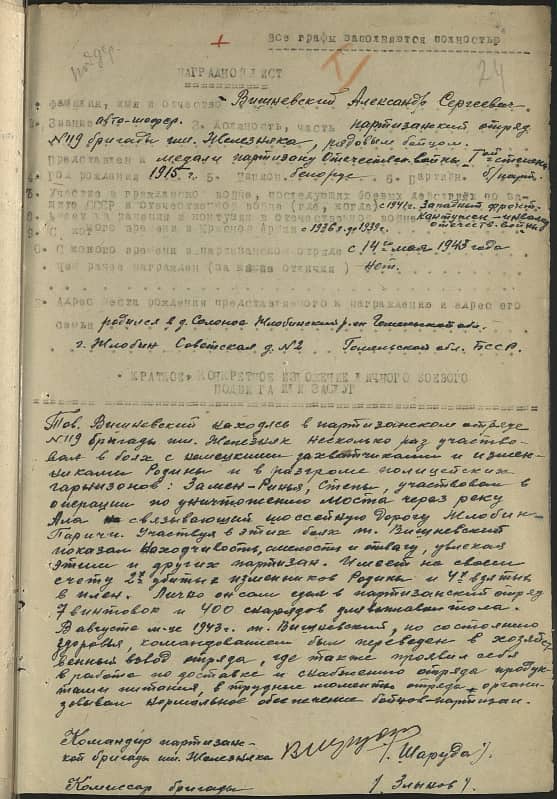 все графы заполняются полностью
24
НАГРАДНОЙ ЛИСТ
1. фамилия, имя и отчество Вишневский Александр Сергеевич
2. Звание авто-шофер. 3. Должность, часть партизанский отряд
№119 бригады им. Железняка, рядовым бойцом.
Представлен к медали партизану Отечествен. войны I ой степени
4. Год рождения 1915 г. 5. Национ. белорус 6. Партийн. б/парт.
7. Участие в гражданской войне, последующих боевых действиях по за-
щите СССР и отечественной войне (где, когда) с 1941 г. Западный фронт
8. Имеет ли ранения и контузии в отечественной войне контужен - инвалид
отечеств. войны
9. С какого времени в Красной армии с 1936 г. по 1939 г.
10. С какого времени в партизанском отряде с 14 го мая 1943 года
11. Чем ранее награжден (за какие отличия) нет.
12. Адрес места рождения представляемого к награждению и адрес его
семьи родился в д. Солоное Жлобинский р-он Гомельской обл.
г. Жлобин Советская д. №2 Гомельской обл. БССР.
КРАТКОЕ, КОНКРЕТНОЕ ИЗЛОЖЕНИЕ ЛИЧНОГО БОЕВОГО
ПОДВИГА ИЛИ ЗАСЛУГ
Тов. Вишневский находясь в партизанском отряде
№119 бригады им. Железняк несколько раз участво-
вал в боях с немецкими захватчиками и измен-
никами Родины и в разгроме полицейских
гарнизонов: Замен-Рынья, Степы, участвовал в
операции по уничтожению моста через реку
Ала связывающий шоссейную дорогу Жлобин-
Паричи. Участвуя в этих боях т. Вишневский
показал находчивость, смелость и отвагу, увлекая
этим и других партизан. Имеет на своем
счету 2х убитых изменников Родины и 4х взятых
в плен. Лично он сам сдал в партизанский отряд
7 винтовок и 400 снарядов для выплавки тола.
В августе м-це 1943г. т. Вишневский, по состоянию
здоровья, командованием был переведен в хозяйст-
венный взвод отряда, где также проявил себя
в работе по доставке и снабжению отряда продук-
тами питания, в трудные моменты отряда, органи-
зовывал нормальное обеспечение бойцов-партизан.
Командир партизан-
кой бригады им. Железняка /Шаруда/.
Комиссар бригады / Злыков /.